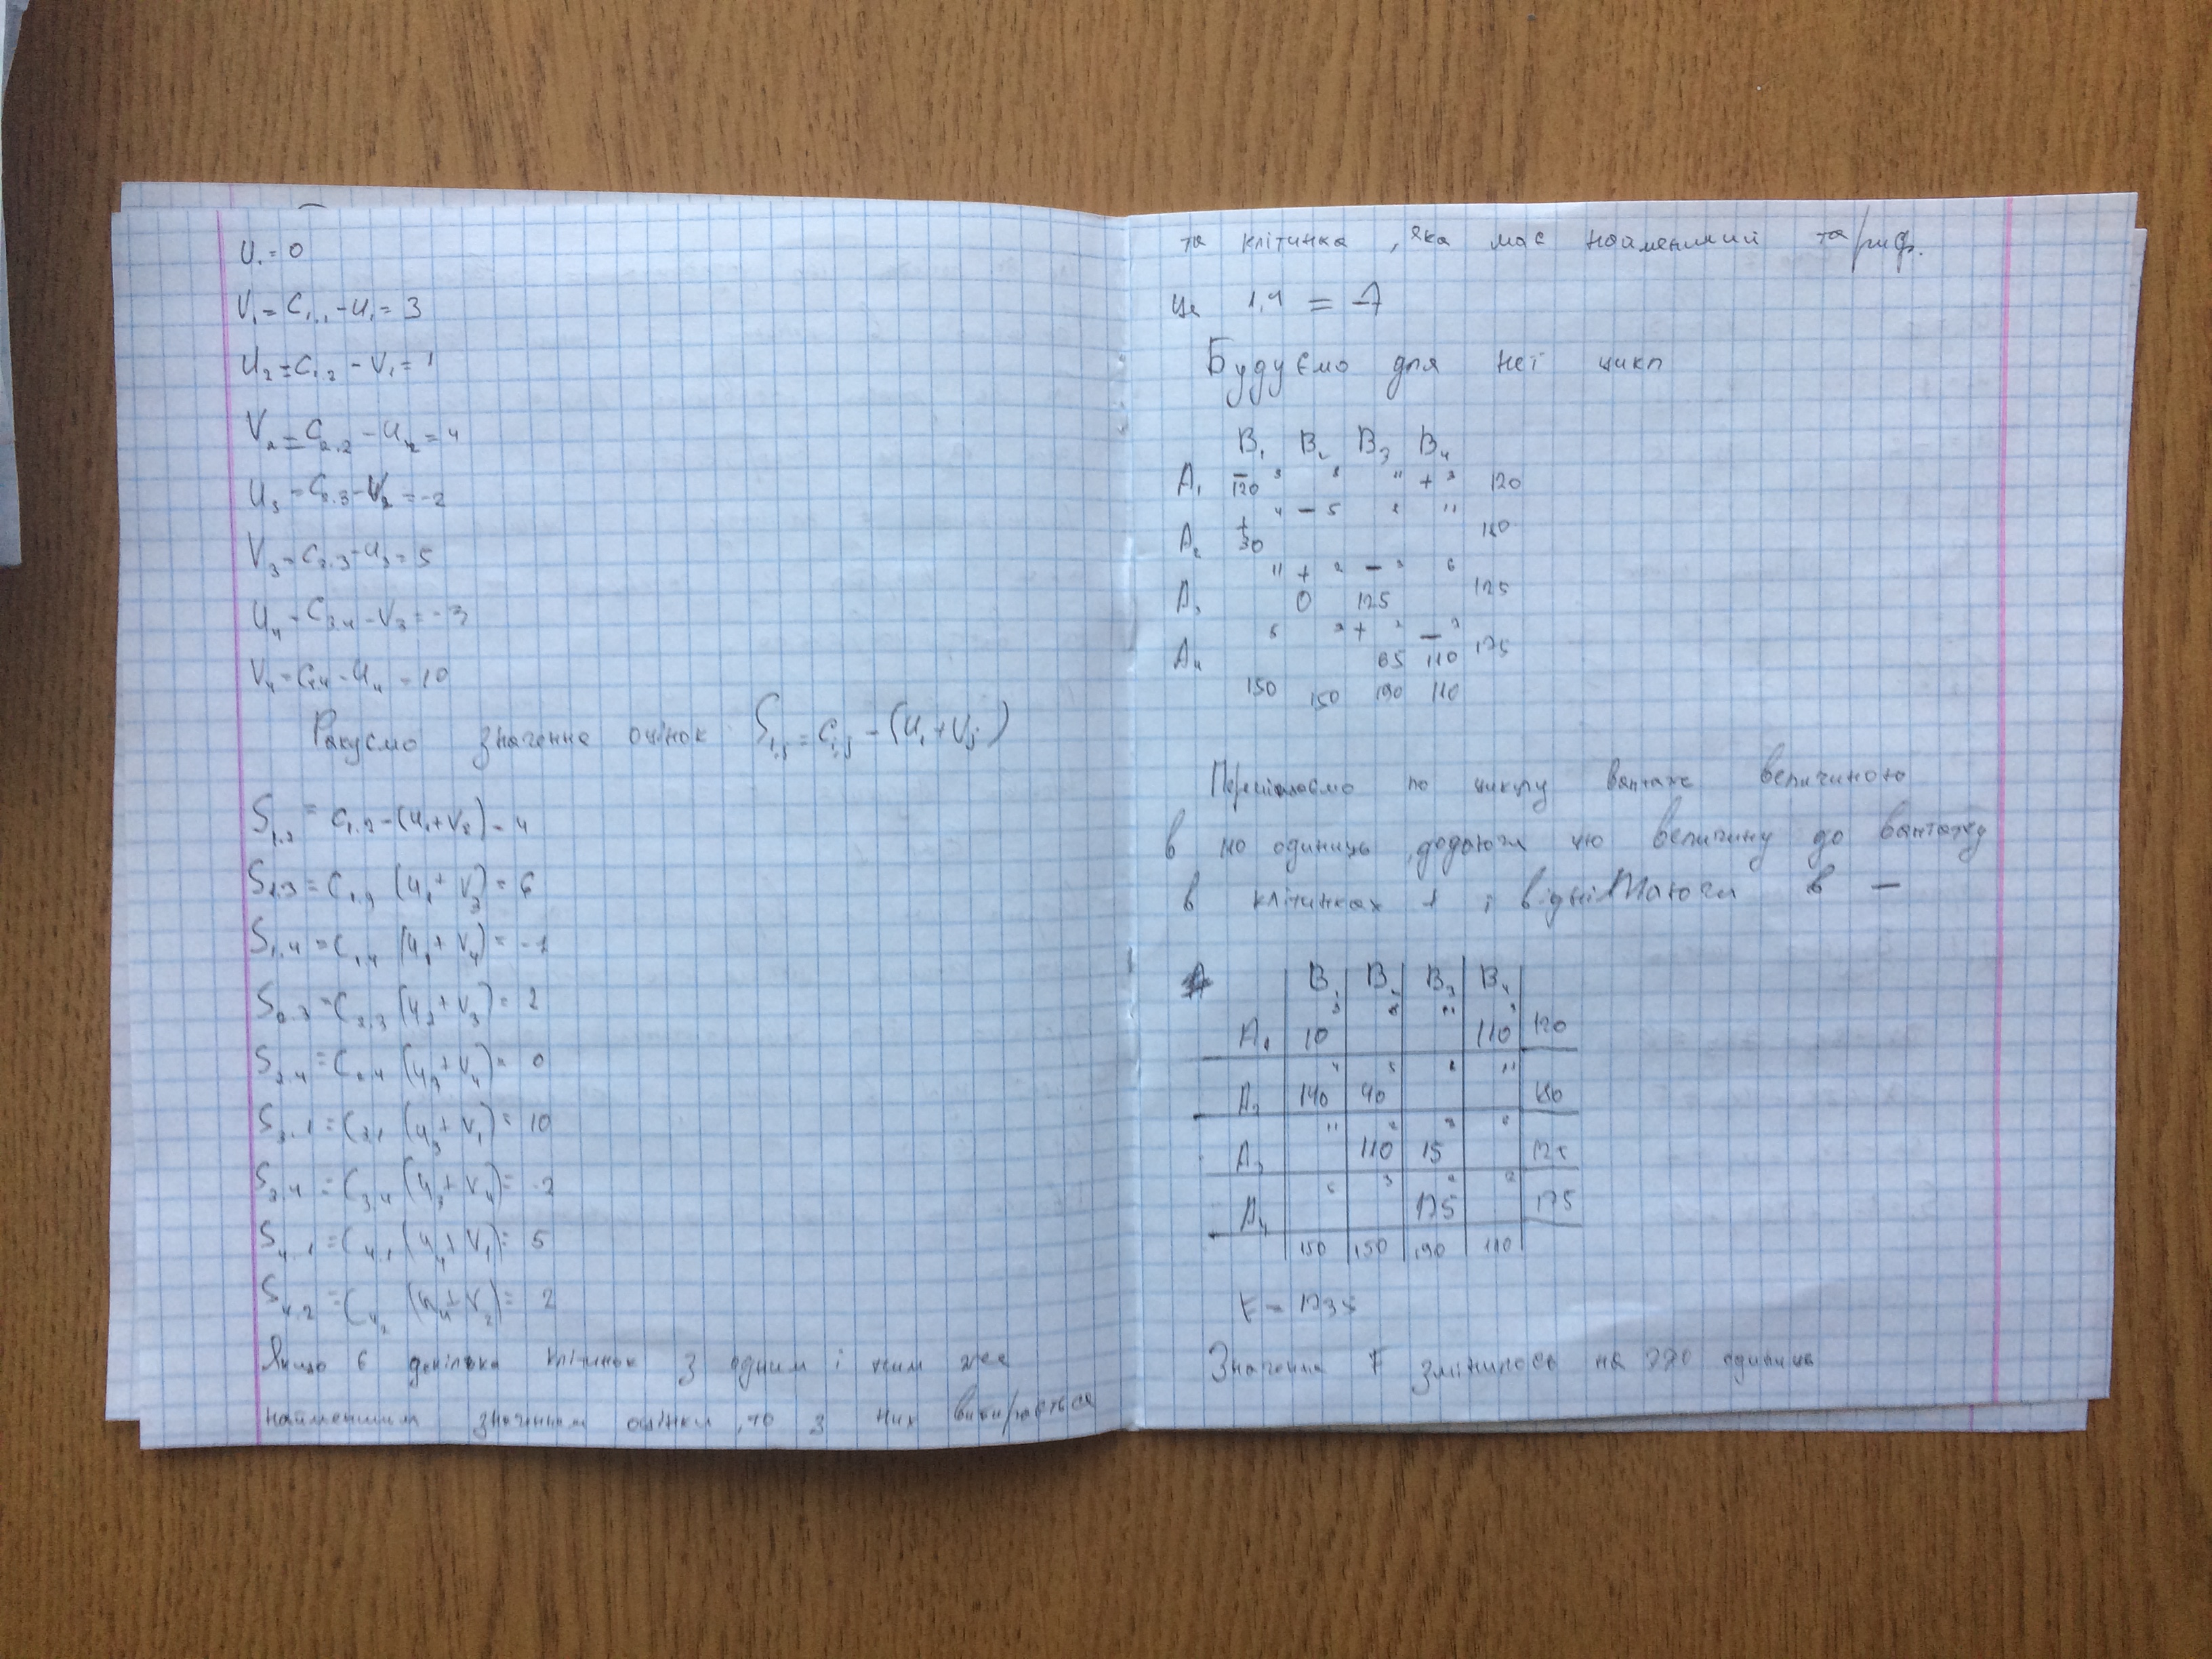 U₁ = 0
V₁ = C₁.₁ - U₁ = 3
U₂ = C₁.₂ - V₁ = 1
V₂ = C₂.₂ - U₂ = 4
U₃ = C₂.₃ - V₂ = -2
V₃ = C₃.₃ - U₃ = 5
U₄ = C₃.₄ - V₃ = -3
V₄ = C₄.₄ - U₄ = 10
Рахуємо значення оцінок S i,j = C i,j - (U i + V j)
S₁.₂ = C₁.₂ - (U₁ + V₂) = 4
S₁.₃ = C₁.₃ (U₁ + V₃) = 6
S₁.₄ = C₁.₄ (U₁ + V₄) = -7
S₂.₃ = C₂.₃ (U₂ + V₃) = 2
S₂.₄ = C₂.₄ (U₂ + V₄) = 0
S₃.₁ = C₃.₁ (U₃ + V₁) = 10
S₃.₄ = C₃.₄ (U₃ + V₄) = -2
S₄.₁ = C₄.₁ (U₄ + V₁) = 5
S₄.₂ = C₄.₂ (U₄ + V₂) = 2
Якщо є декілька клітинок з одним і тим же
найменшим значенням оцінки, то з них вибирається
та клітинка, яка має найменший тариф.
Це 1,4 = -7
Будуємо для неї цикл
B₁ B₂ B₃ B₄
A₁ - 120 3 8 11 + 3 120
A₂ + 30 4 - 5 8 11 180
A₃ 11 + 0 2 - 125 3 6 125
A₄ 5 3 + 65 2 - 110 7 175
150 150 190 110
Переміщаємо по циклу вантаж величиною
в 110 одиниць, додаючи цю величину до вантажу
в клітинках + і віднімаючи в -
B₁ B₂ B₃ B₄
A₁ 10 3 8 11 110 3 120
A₂ 140 4 40 5 8 11 180
A₃ 11 110 2 15 3 6 125
A₄ 5 3 175 2 175
150 150 190 110
F = 1735
Значення F змінилось на 770 одиниць